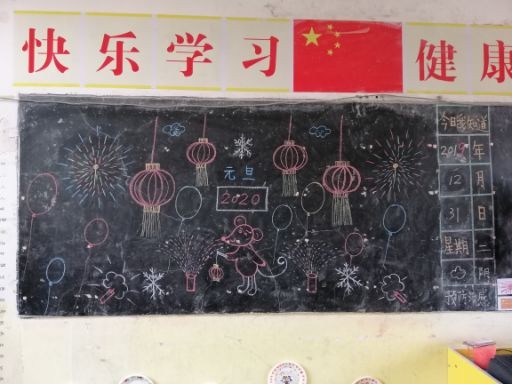 快乐学习 健康
元旦
2020
今日我知道
2019年
12月
31日
星期二
阴